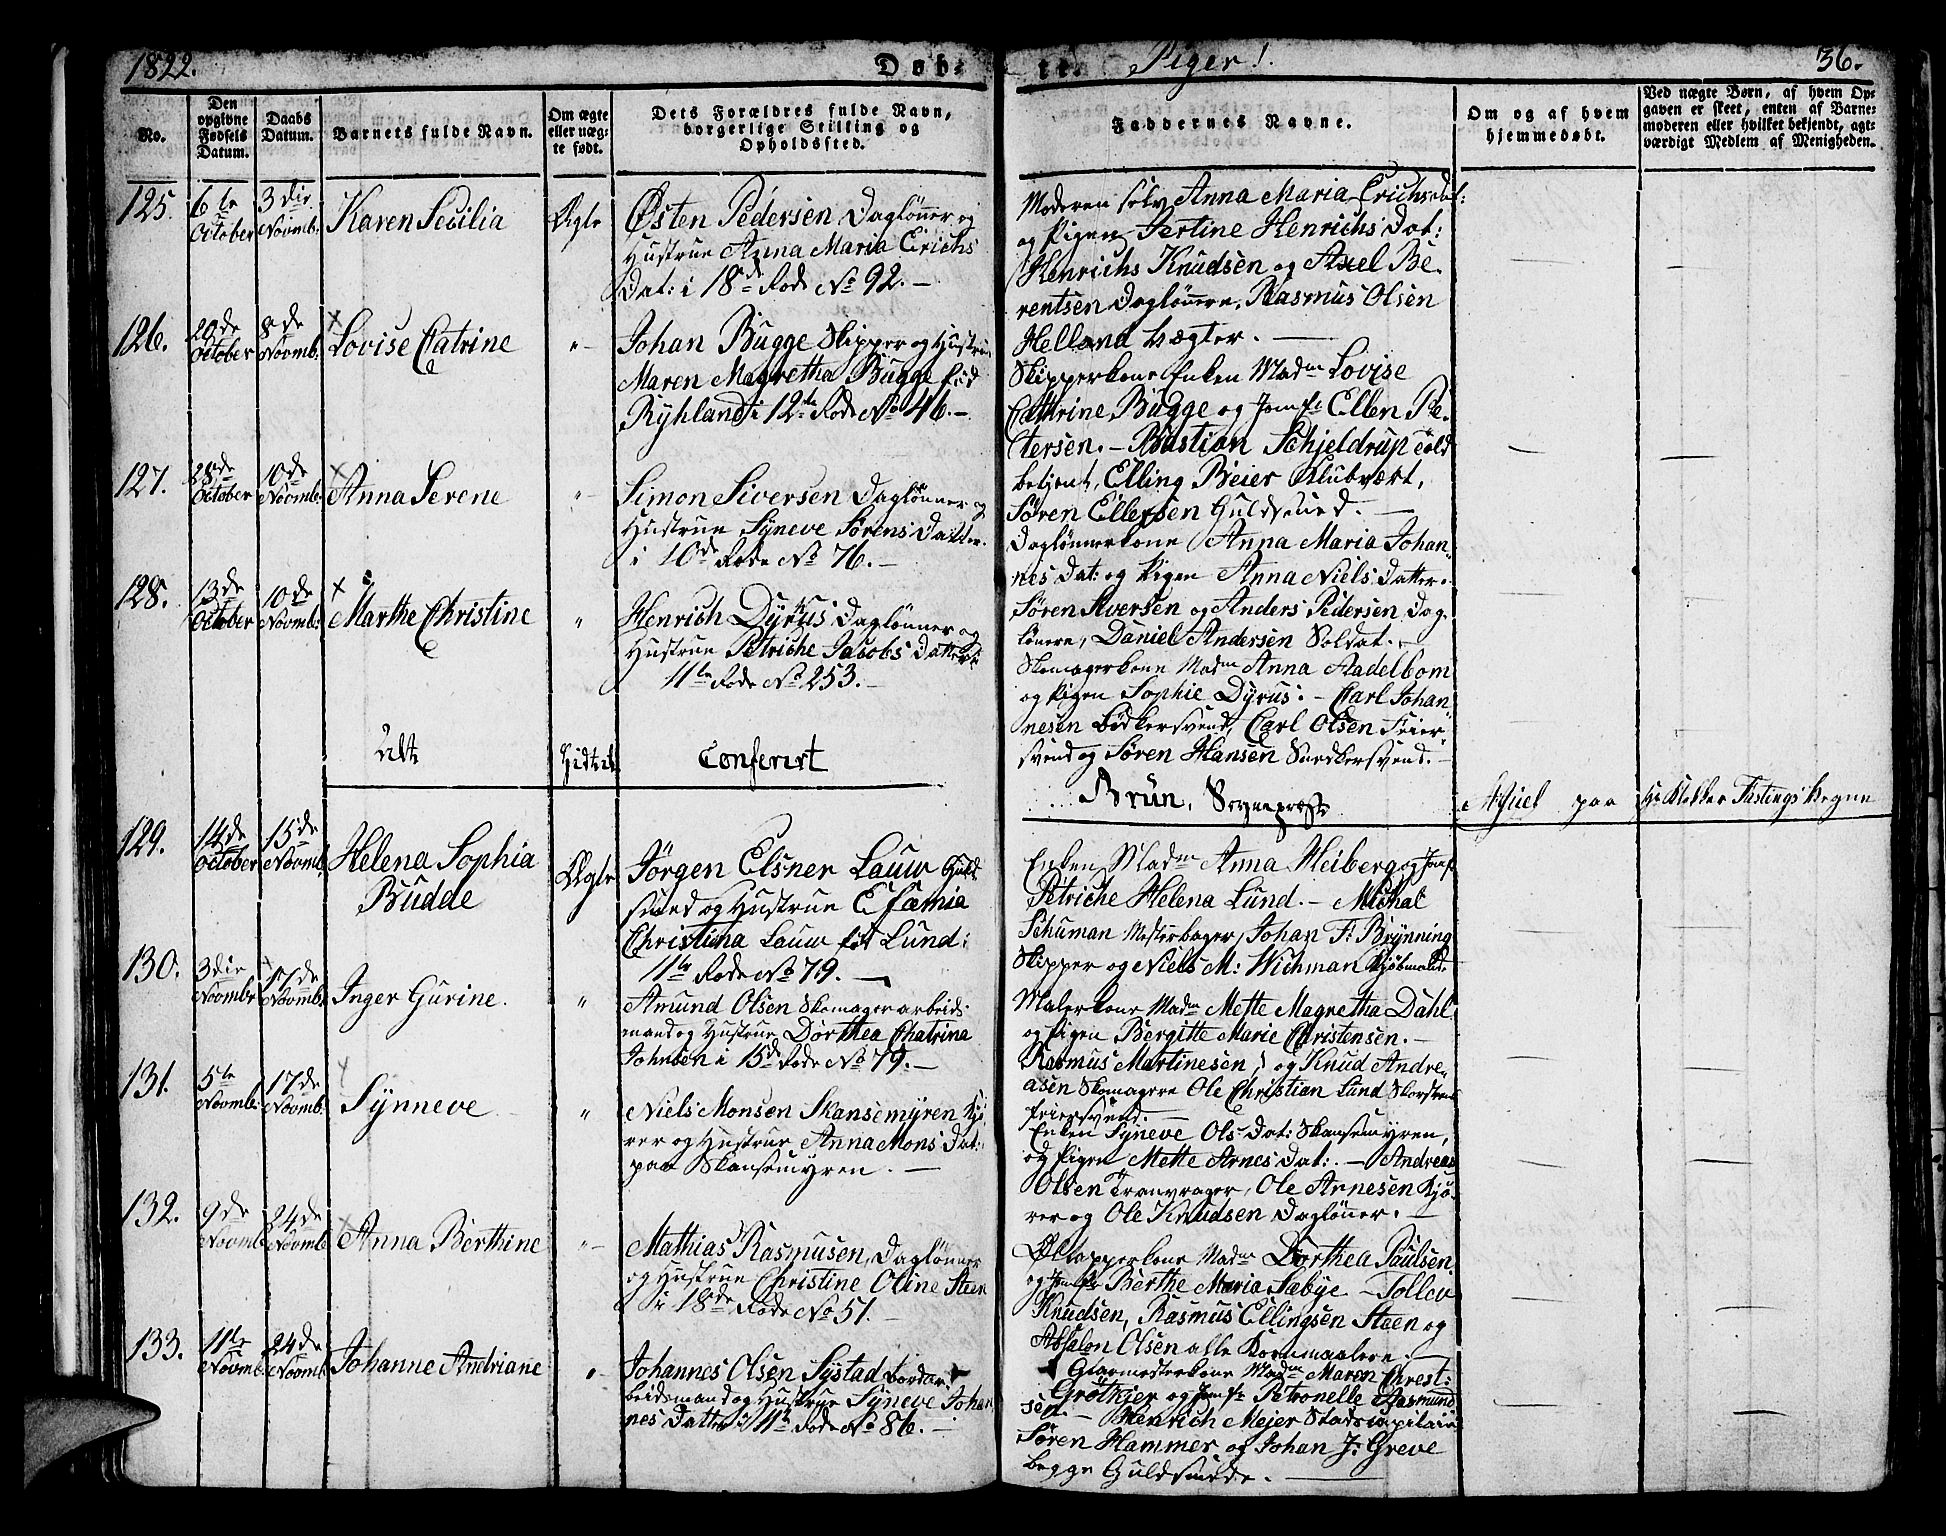 1822. Døb- te. Piger 1. 36.
No.
Den opgivne Fødsels Datum.
Daabs Datum.
Barnets fulde Navn.
Om ægte eller uægte født.
Dets Forældres fulde Navn, borgerlige Stilling og Opholdssted.
Faddernes Navne.
Om og af hvem hjemmedøbt.
Ved uægte Børn, af hvem Opgaven er skeet, enten af Barnemoderen eller hvilket bekjendt, agtværdigt Medlem af Menigheden.
125. 6te October 3die Novmb: Karen Secilia Ægte
Østen Pedersen Dagløner og
Hustrue Anna Maria Erichs
Dat: i 18de Rode No 92. —
Moderen selv Anna Maria Erichsdat:
og Pigen Sertine Henrichs Dat:
Henrichs Knudsen og Axel Be-
rentsen Daglønere, Rasmus Olsen
Helland Vægter. —
126. 20de October 8de Novmb: Lovise Catrine "
Johan Bugge Skipper og Hustrue
Maren Magretha Bugge fød
Ryhland i 12te Rode No 46. —
Skipperkone Enken Madm Lovise
Cattrine Bugge og Jomf: Ellen Pe-
tersen. — Bastian Schjeldrup Told
betjent, Elling Beier Klubvært,
Søren Ellersen Guldsmed. —
127. 28de October 10de Novmb: Anna Serene "
Simon Siversen Dagløner og
Hustrue Syneve Sørens Datter.
i 10de Rode No 76. —
Daglønnerkone Anna Maria Johan-
nes Dat: og Pigen Anna Niels Datter.
Søren Siversen og Anders Pedersen Dag-
lønere, Daniel Andersen Soldat. —
128. 13de October 10de Novmb: Marthe Christine "
Henrich Dyrus Dagløner og
Hustrue Petriche Jacobs Datter i
11te Rode No 253. —
Skomagerkone Madm Anna Aadelbom
og Pigen Sophie Dyrus. — Carl Johan-
nesen Bødkersvend, Carl Olsen Feier-
svend og Søren Hansen Snedkersvend. —
Alt Hidtil Conferert
Brun, Sogneprest Aftuel paa Hr Klokker Fastings Vegne
129. 14de October 15de Novmb. Helena Sophia
Budde Ægte
Jørgen Elsner Lauw Guld
smed og Hustrue Efæmia
Christina Lauw fød Lund i
11te Rode No 79. —
Enken Madm Anna Heiberg og Jomf
Petriche Helena Lund. — Michal
Schuman Mesterbager, Johan F: Brynning
Skipper og Niels M: Wichman Kjøbmand.
130. 3die Novmbr 17de Novmb: Inger Gurine. "
Amund Olsen Skomager arbeids
mand og Hustrue Dorthea Chatrina
Johnsen i 15de Rode No 79. —
Malerkone Madm Mette Magretha Dahl
og Pigen Bergitte Marie Christensen. —
Rasmus Martinesen, og Knud Andre-
asen Skomagere Ole Christian Lund Skorsteens
feiersvend. —
131. 5te Novmb: 17de Novmb. Synneve "
Niels Monsen Skansemyren Kjø
rer og Hustrue Anna Mons Dat:
paa Skansemyren. —
Enken Syneve Ols Dat: Skansemyren,
og Pigen Mette Arnes Dat: — Andreas
Olsen Tranvrager, Ole Arnesen Kjø-
rer og Ole Knudsen Dagløner. —
132. 9de Novmb. 24de Novmb. Anna Berthine "
Mathias Rasmusen, Dagløner
og Hustrue Christine Oline Steen
i 18de Rode No 51. —
Øltapperkone Madm Dorthea Paulsen
og Jomfr Berthe Maria Sæbye — Tollev
Knudsen, Rasmus Ellingsen Steen og
Absalon Olsen alle Kornmaalere. —
133. 11te Novmb. 24de Novmb. Johanne Andriane "
Johannes Olsen Systad Bordar-
beidsmand og Hustrue Syneve Johan
nes Datter i 11te Rode No 86. —
Glarmesterkone Madm Maren Chrest:
Grötkjer og Jomfr Petronelle Aasmund
sen. — Henrich Mejer Stadscapitain
Søren Hammer og Johan J: Greve
begge Guldsmede. —